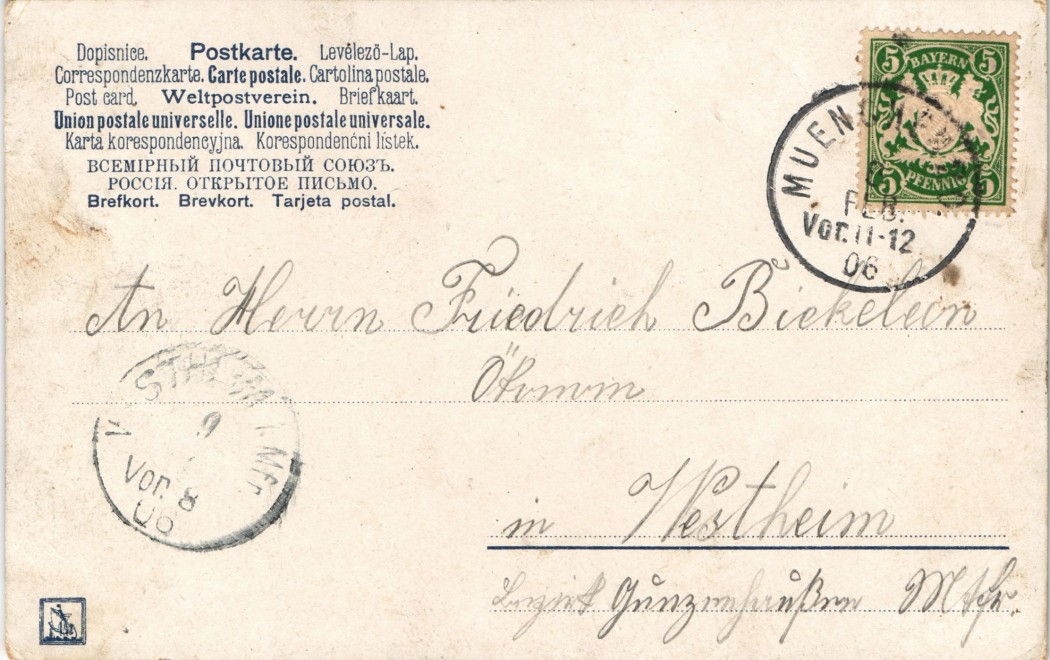 Dopisnice. Postkarte. Levélező-Lap.
Correspondenzkarte. Carte postale. Cartolina postale.
Post card. Weltpostverein. Briefkaart.
Union postale universelle. Unione postale universale.
Karta korespondencyjna. Korespondenční lístek.
ВСЕМІРНЫЙ ПОЧТОВЫЙ СОЮЗЪ.
РОССІЯ. ОТКРЫТОЕ ПИСЬМО.
Brefkort. Brevkort. Tarjeta postal.
5 BAYERN 5
5 PFENNIG 5
FEB.
Vor. 11-12
06
An Herrn Friedrich Bickelein
Ökonom
9
Vor. 8
06
in Westheim
Bezirk Gunzenhaußen Mfr.